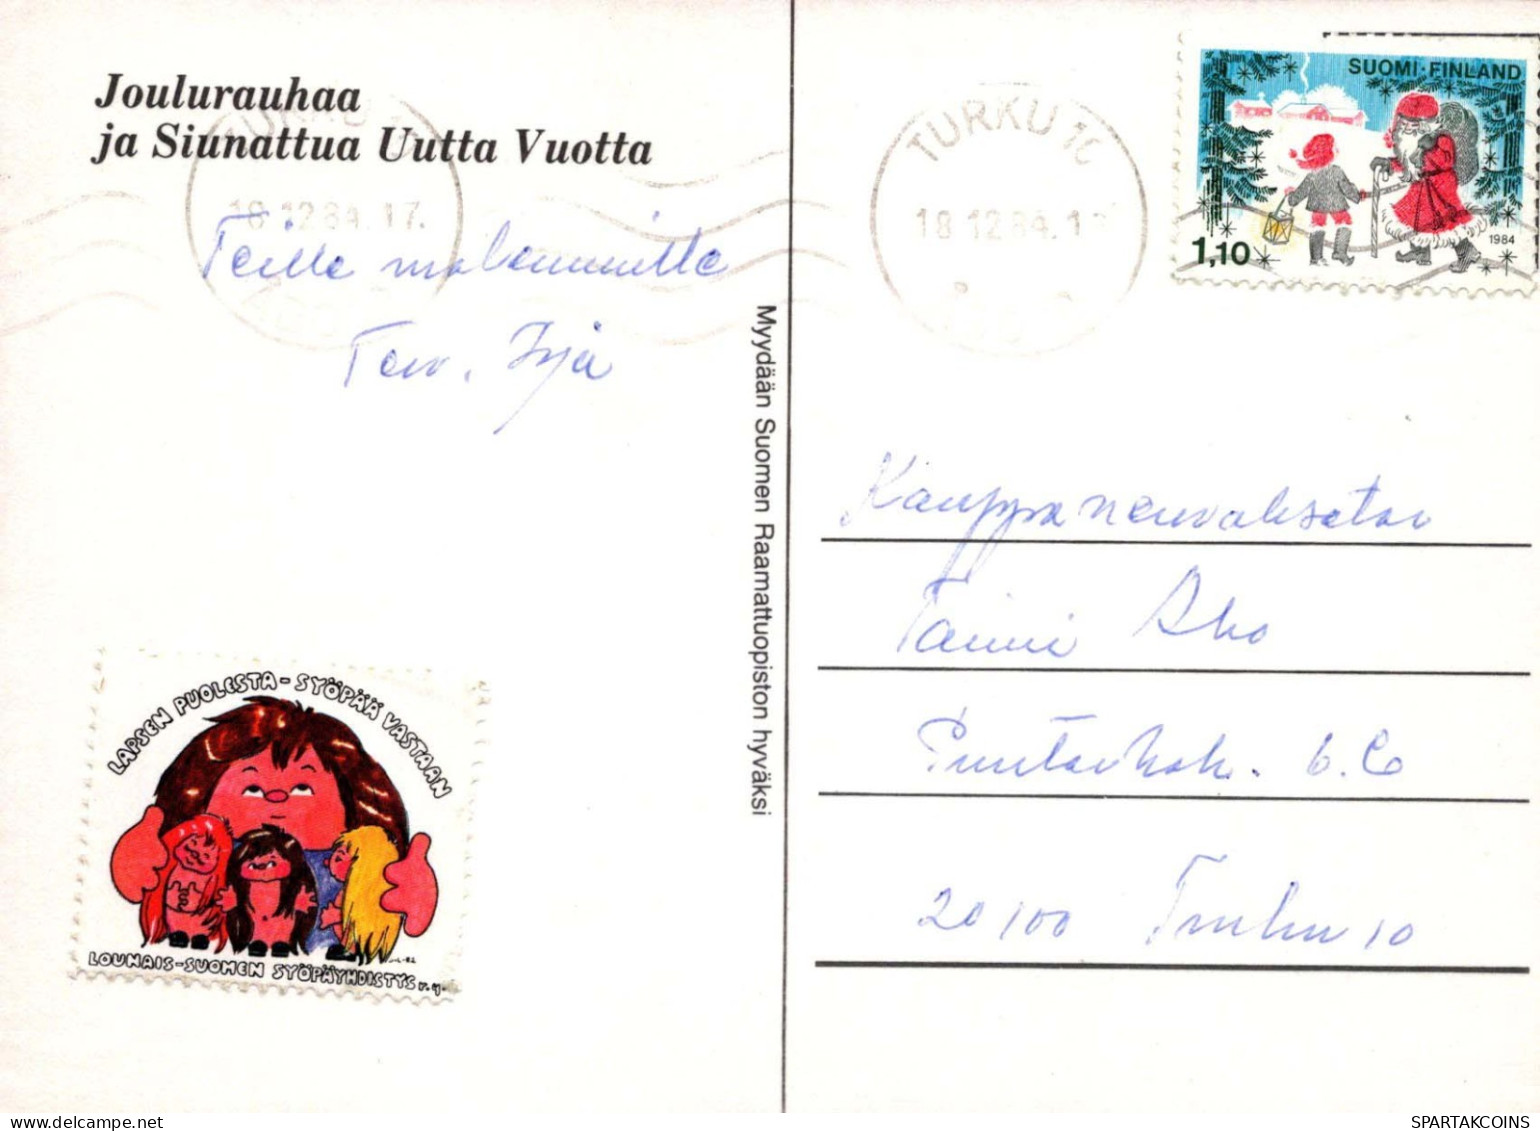 Joulurauhaa
ja Siunattua Uutta Vuotta
TURKU
18.12.84.17.
Teille molemmille
Terv. Irja
LAPSEN PUOLESTA - SYÖPÄÄ VASTAAN
LOUNAIS-SUOMEN SYÖPÄYHDISTYS r.y.
Myydään Suomen Raamattuopiston hyväksi
TURKU 10
18.12.84.1
SUOMI·FINLAND
1,10
1984
Kauppaneuvoksetar
Taimi Aho
Puutarhak. 6. C
20100 Turku 10
SPARTAKCOINS.COM